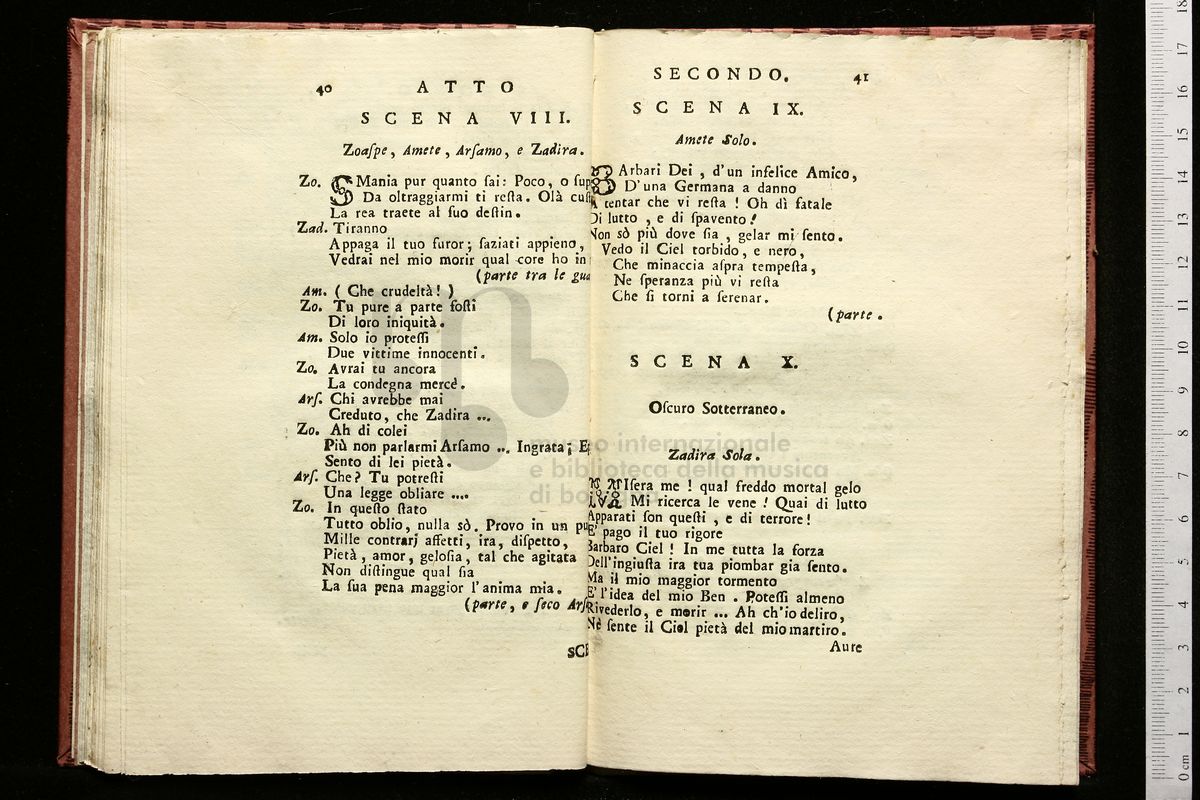 40 ATTO
SCENA VIII.
Zoaſpe, Amete, Arſamo, e Zadira.
Zo. SMania pur quanto ſai: Poco, o
Da oltraggiarmi ti reſta. Olà
La rea traete al ſuo deſtin.
Zad. Tiranno
Appaga il tuo furor; ſaziati appieno,
Vedrai nel mio morir qual core ho in
(parte tra le
Am. ( Che crudeltà! )
Zo. Tu pure a parte foſti
Di loro iniquità.
Am. Solo io proteſſi
Due vittime innocenti.
Zo. Avrai tu ancora
La condegna mercè.
Arſ. Chi avrebbe mai
Creduto, che Zadira ...
Zo. Ah di colei
Più non parlarmi Arſamo ... Ingrata;
Sento di lei pietà.
Arſ. Che? Tu potreſti
Una legge obliare ....
Zo. In queſto ſtato
Tutto oblio, nulla sò. Provo in un
Mille contrarj affetti, ira, diſpetto,
Pietà, amor, geloſia, tal che agitata
Non diſtingue qual ſia
La ſua pena maggior l'anima mia.
(parte, e ſeco
SECONDO. 41
SCENA IX.
Amete Solo.
BArbari Dei, d'un infelice Amico,
D'una Germana a danno
A tentar che vi reſta! Oh dì fatale
Di lutto, e di ſpavento!
Non sò più dove ſia, gelar mi ſento.
Vedo il Ciel torbido, e nero,
Che minaccia aſpra tempeſta,
Ne ſperanza più vi reſta
Che ſi torni a ſerenar.
(parte.
SCENA X.
Oſcuro Sotterraneo.
Zadira Sola.
MIſera me! qual freddo mortal gelo
Mi ricerca le vene! Quai di lutto
Apparati ſon queſti, e di terrore!
E' pago il tuo rigore
Barbaro Ciel! In me tutta la forza
Dell'ingiuſta ira tua piombar gia ſento.
Ma il mio maggior tormento
E' l'idea del mio Ben. Poteſſi almeno
Rivederlo, e morir ... Ah ch'io deliro,
Nè ſente il Ciel pietà del mio martiro.
Aure
museo internazionale
e biblioteca della musica
di bologna
0 cm 1 2 3 4 5 6 7 8 9 10 11 12 13 14 15 16 17 18